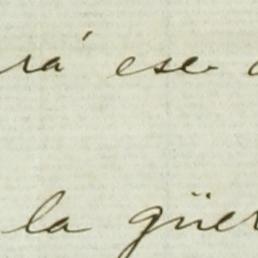 rá ese
la güer